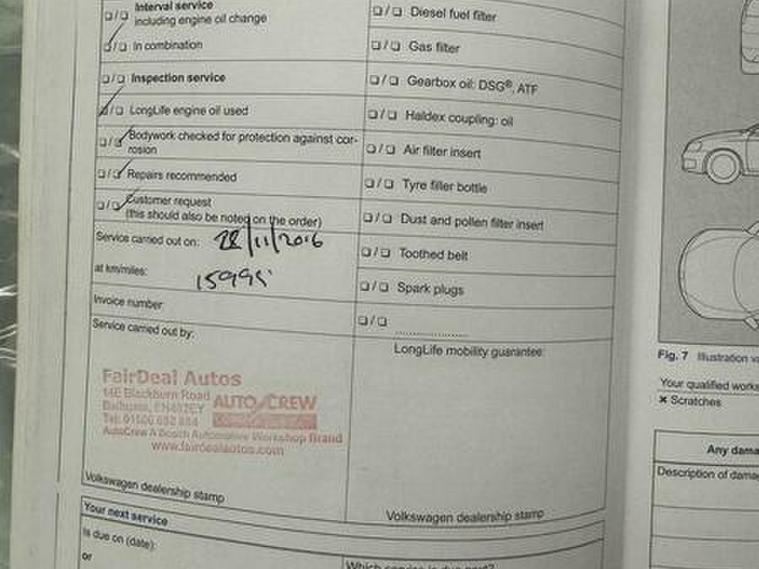 Interval service
including engine oil change
In combination
Inspection service
LongLife engine oil used
Bodywork checked for protection against cor-
rosion
Repairs recommended
Customer request
(this should also be noted on the order)
Service carried out on: 22/11/2016
at km/miles: 15995
Invoice number
Service carried out by:
FairDeal Autos
14E Blackburn Road
AUTO CREW
AutoCrew A Bosch Automotive Workshop Brand
www.fairdealautos.com
Volkswagen dealership stamp
Diesel fuel filter
Gas filter
Gearbox oil: DSG®, ATF
Haldex coupling: oil
Air filter insert
Tyre filler bottle
Dust and pollen filter insert
Toothed belt
Spark plugs
LongLife mobility guarantee:
Volkswagen dealership stamp
Your next service
Is due on (date):
or
Which service is due next?
Fig. 7 Illustration
Your qualified
✖ Scratches
Any
Description of